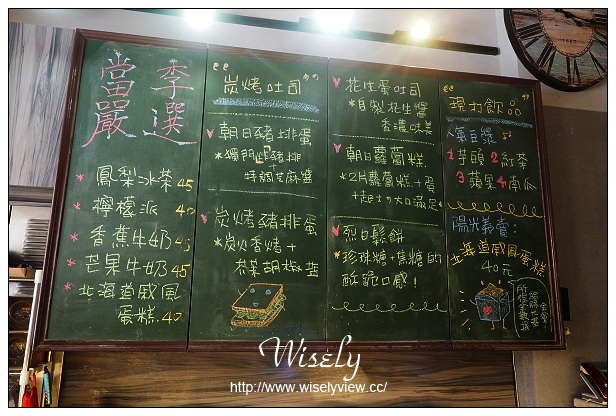 當季
嚴選
* 鳳梨冰茶 45
* 檸檬派 40
* 香蕉牛奶 45
* 芒果牛奶 45
* 北海道戚風
蛋糕. 40
"炭烤吐司"
朝日豬排蛋
*獨門豬排
特調芝麻醬
炭烤豬排蛋
*炭火香烤+
胡椒鹽
花生蛋吐司
*自製花生醬
香濃味美
朝日蘿蔔糕
*2片蘿蔔糕+蛋
+起士の大口滿足
烈日鬆餅
*珍珠糖+焦糖的
酥脆口感!
"現力飲品"
人氣豆漿
1芋頭 2紅茶
3蘋果 4南瓜
陽光義賣:
北海道戚風蛋糕
40元
Wisely
http://www.wiselyview.cc/